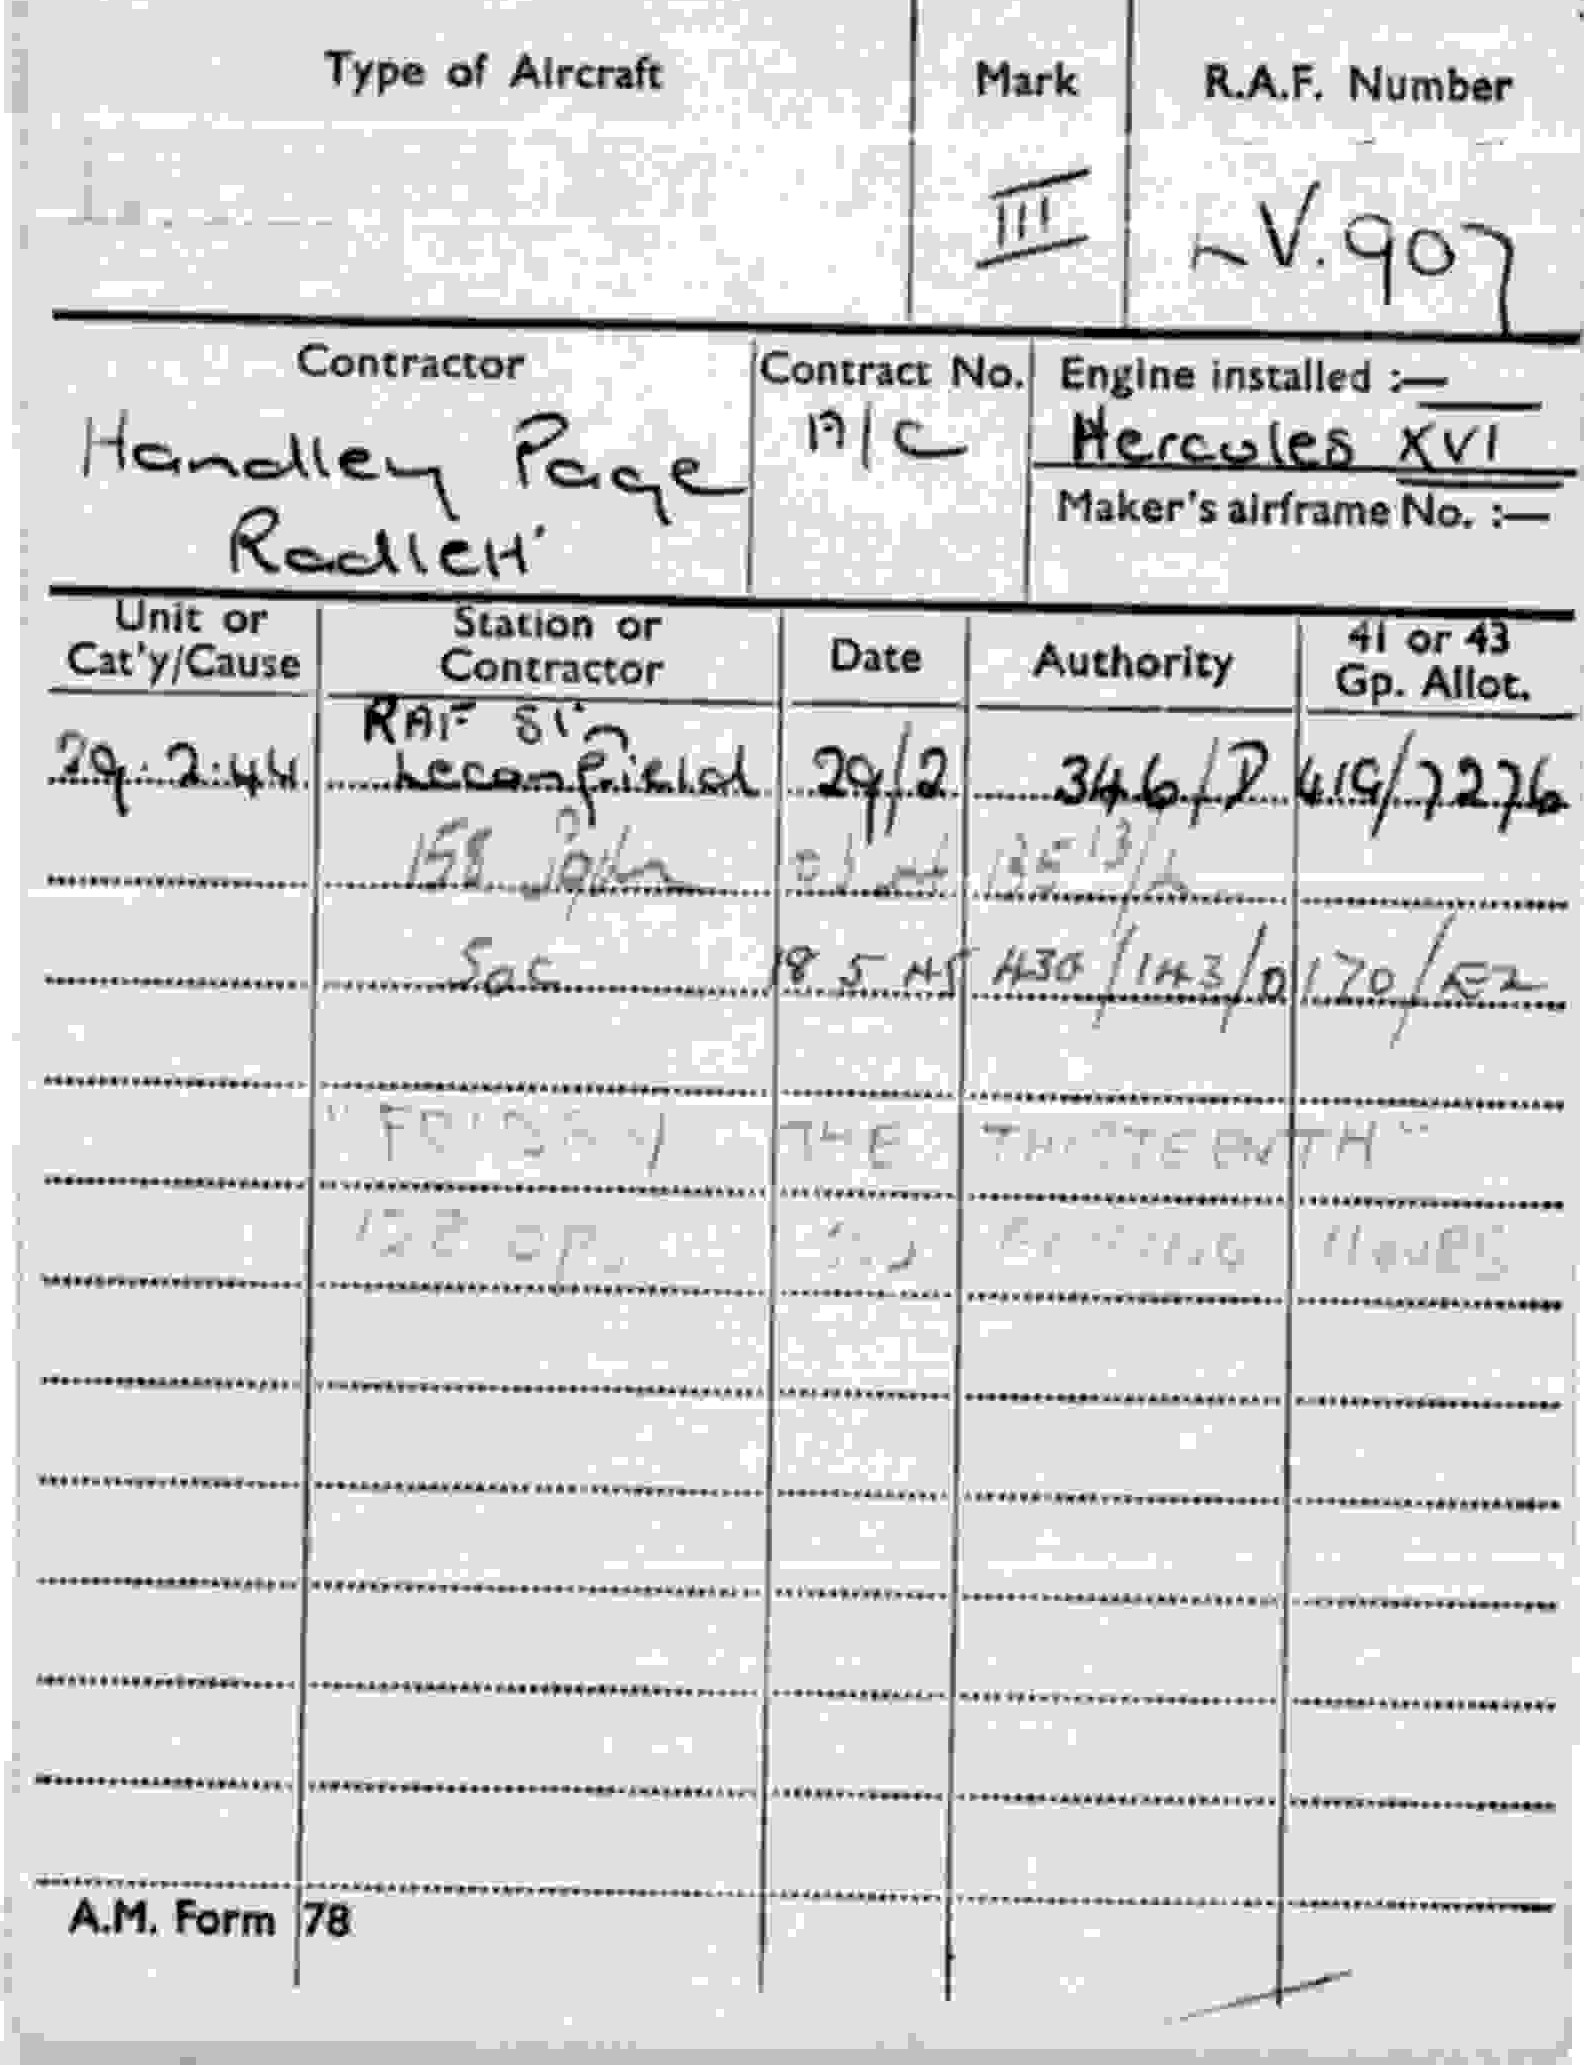 Type of Aircraft Mark R.A.F. Number
III LV.907
Contractor Contract No. Engine installed :—
Handley Page A/C Hercules XVI
Maker's airframe No. :—
Radlett
Unit or Cat'y/Cause Station or Contractor Date Authority 41 or 43 Gp. Allot.
RAF Stn
29.2.44 Leconfield 29/2 346/D 41G/7276
158
Soc 18 5 45 430/143/0 170/
"FRIDAY THE THIRTEENTH"
128 OPS HOURS
A.M. Form 78